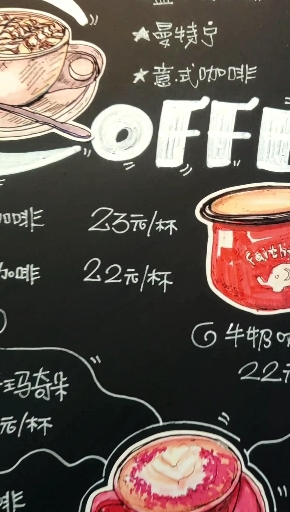 ★曼特宁
★意式咖啡
OFFE
咖啡 23元/杯
咖啡 22元/杯
牛奶
22元
玛奇朵
元/杯
啡